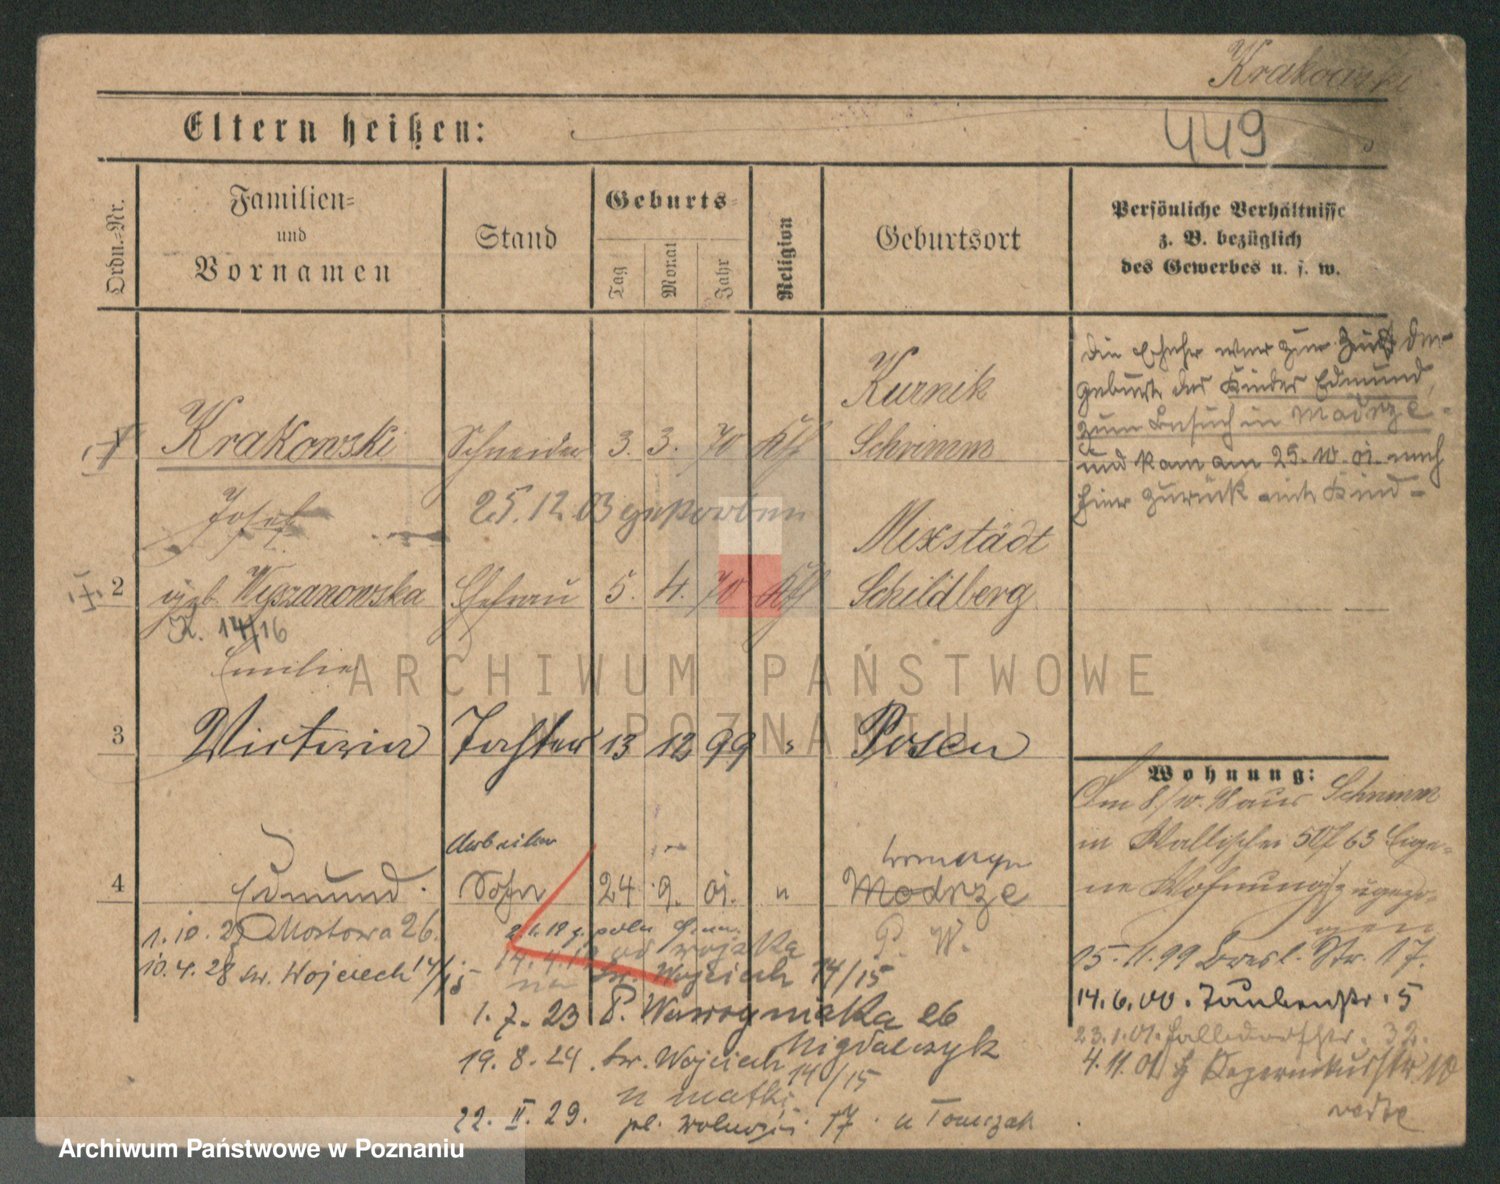 Krakowski
Eltern heißen:
449
Ordn.-Nr.
Familien-
und
Vornamen
Stand
Geburts-
Tag
Monat
Jahr
Religion
Geburtsort
Persönliche Verhältnisse
z. B. bezüglich
des Gewerbes u. s. w.
Die Ehefr war zur Zeit der
geburt des Kindes Edmund,
zum Besuch in Modrze
und kam am 25. 10. 01. nach
hier zurück mit Kind
1 Krakowski Schneider 3. 3. 70 Kth Kurnik
Schrimm
Josef 25.12.03 gestorben
2 geb. Wyszanowska Ehefrau 5. 4. 70 Kth Mixstadt
Schildberg
K. 14/16
Emilie
3 Victoria Tochter 13 12 99 " Posen
Wohnung:
Am 8/10. 98 aus Schrimm
in Wallischei 63 Eige-
ne Wohnung zugezo-
gen
Arbeiter
4 Edmund. Sohn 24 9. 01. " Modrze
P. W.
1.10.25 Mostowa 26.
10.4.28 św. Wojciech 14/15
wojska
św. Wojciech 14/15
1.7.23 P. Wawrzyniaka 26
Migdalczyk
19.8.24. św. Wojciech 14/15
u matki
22. II. 29. pl. Wolności 17. u Tomczak
15.11.99 Bresl. Str. 17.
14.6.00. Taubenstr. 5
23.1.01. 32.
4.11.01
ARCHIWUM PAŃSTWOWE
W POZNANIU
Archiwum Państwowe w Poznaniu